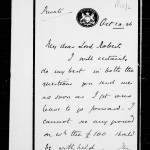 Private
Oct 20, 86
My dear Lord Robert
I will certainly
do my best in both the
questions you send me
as soon as I get once
leave to go forward. I
cannot see any ground
on wh the £100 should
be withheld